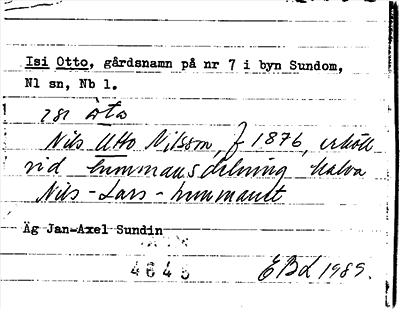 Isi Otto, gårdsnamn på nr 7 i byn Sundom,
Nl sn, Nb l.
ısı òto
Nils Otto Nilsson, f 1876, erhöll
vid hemmansdelning halva
Nils-Lars-hemmanet
Äg Jan-Axel Sundin
4646
EBL 1989.